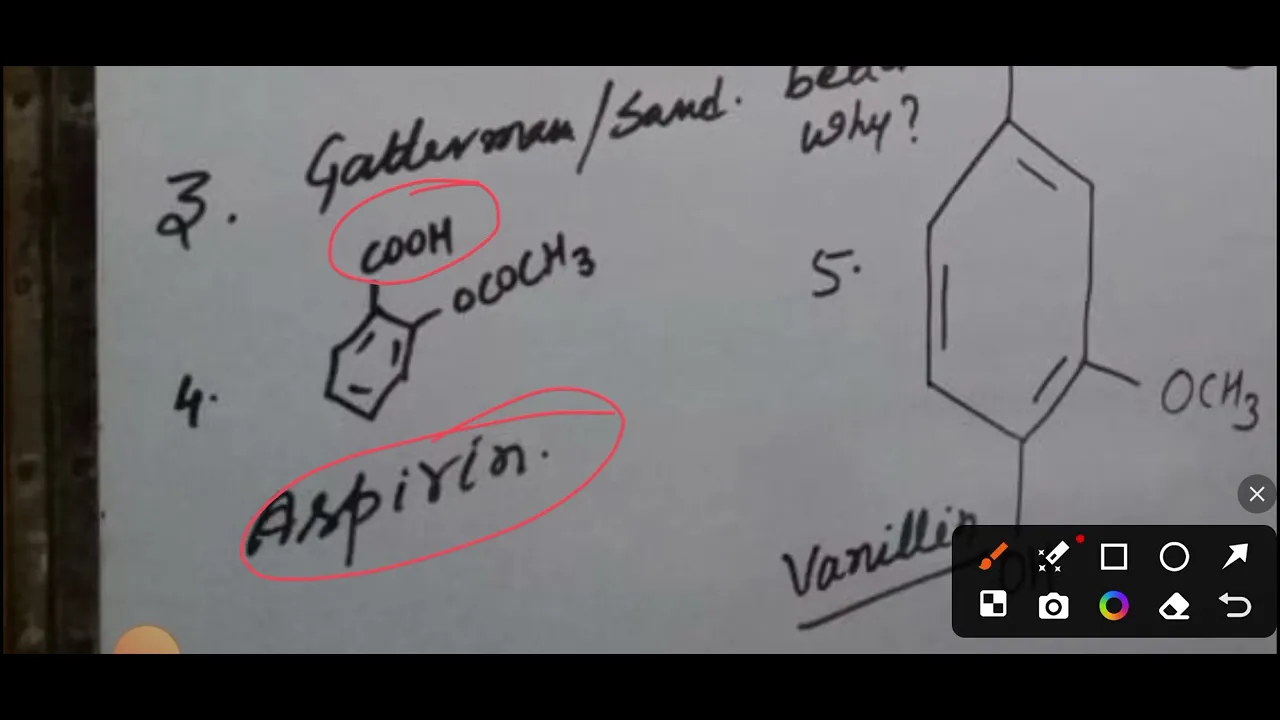 3. Gatterman/Sand.
why?
COOH
OCOCH3
4.
Aspirin.
5.
OCH3
Vanillin